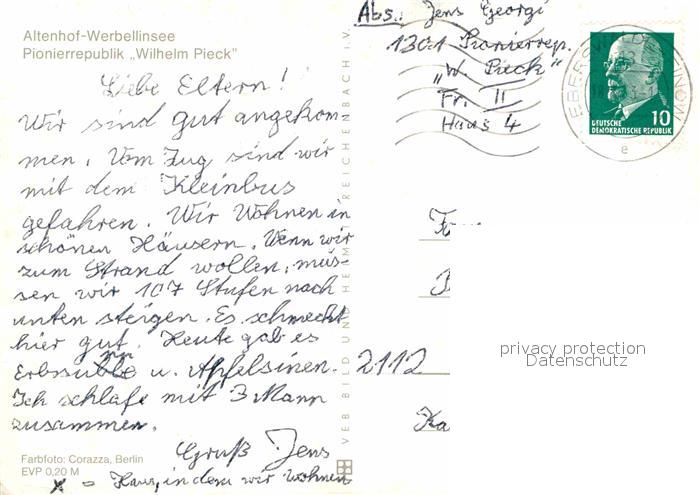 Altenhof-Werbellinsee
Pionierrepublik „Wilhelm Pieck"
Liebe Eltern!
Wir sind gut angekom
men. Vom Zug sind wir
mit dem Kleinbus
gefahren. Wir Wohnen in
schönen Häusern. Wenn wir
zum Strand wollen, müs-
sen wir 107 Stufen nach
unten steigen. Es schmeckt
hier gut. Heute gab es
u. Apfelsinen.
Ich schlafe mit 3 Mann
zusammen.
Gruß Jens
x = Haus, in dem wir wohnen
Farbfoto: Corazza, Berlin
EVP 0,20 M
VEB BILD UND HEIMAT REICHENBACH i.V.
Abs.: Jens Georgi
1301 Pionierrep.
„W. Pieck"
Fr. II
Haus 4
10
DEUTSCHE
DEMOKRATISCHE REPUBLIK
EBERSWALDE-FINOW
e
2112
Ka
privacy protection
Datenschutz